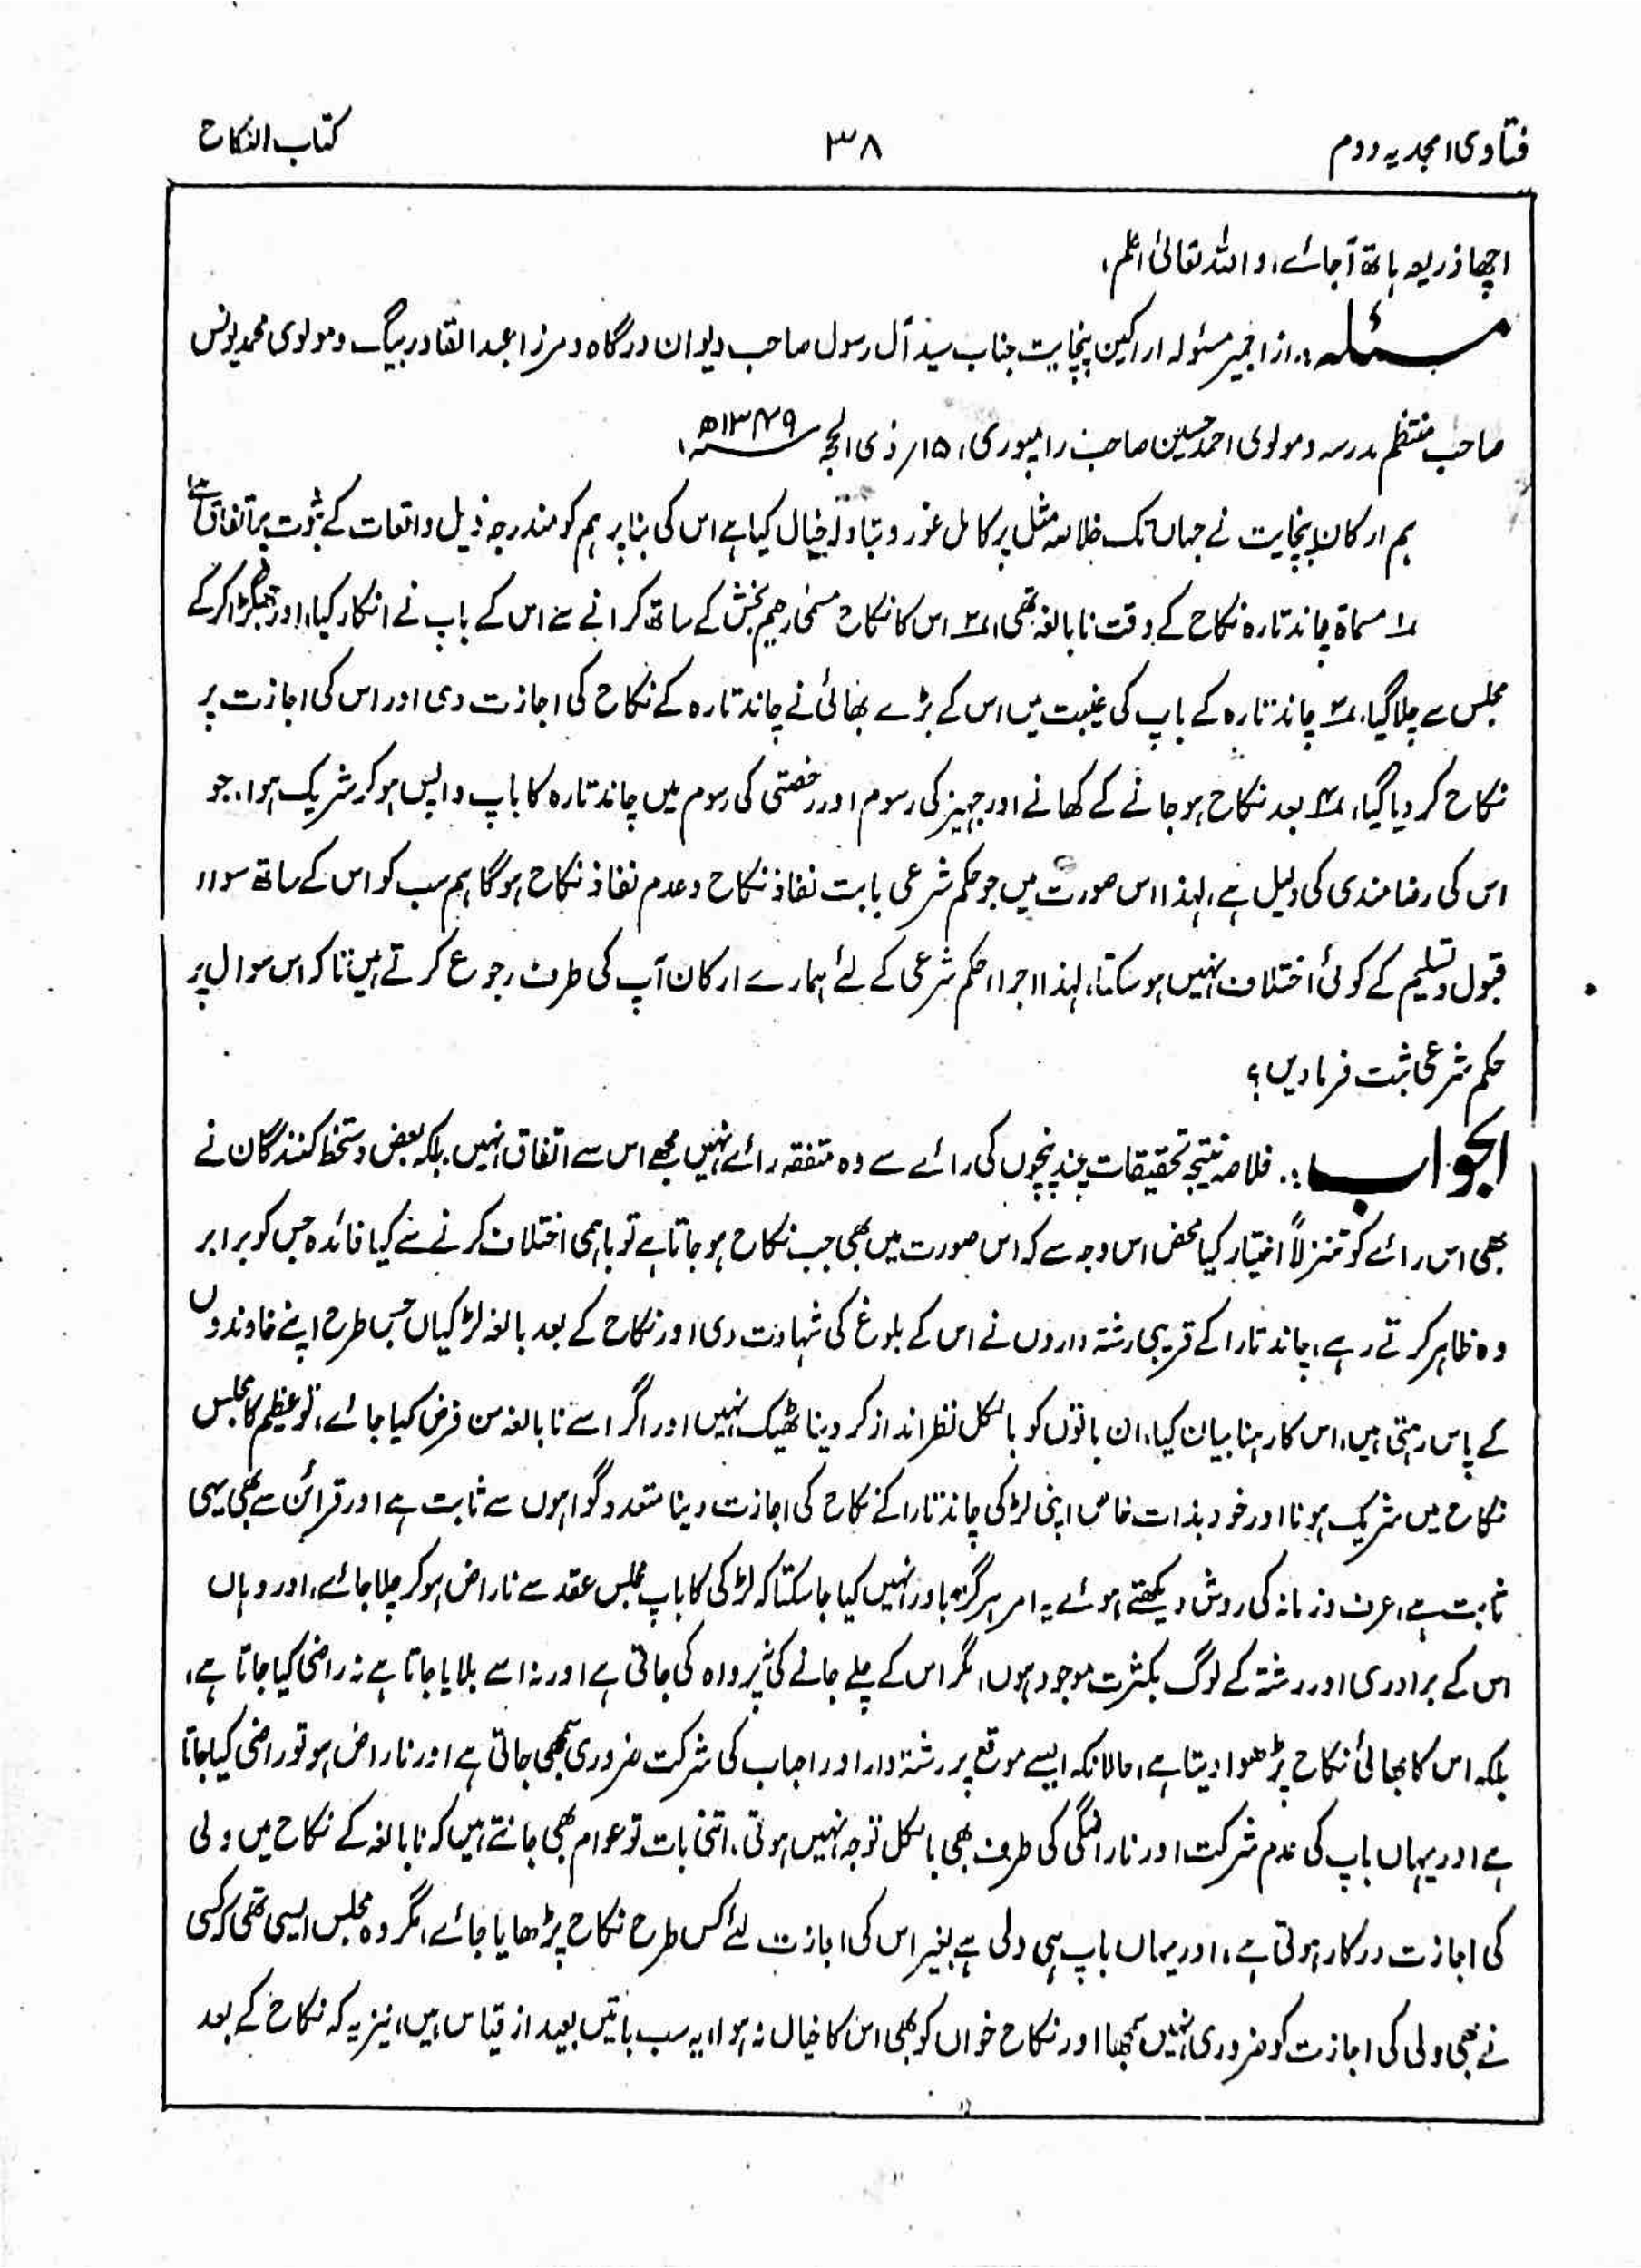 فتاوی امجدیہ دوم
٣٨
کتاب النکاح
اچھا ذریعہ ہاتھ آجائے، واللہ تعالیٰ اعلم،
مسئلہ :. از اجمیر مسئولہ اراکین پنچایت جناب سید آل رسول صاحب دیوان درگاہ و مرزا عبدالقادر بیگ و مولوی محمد یونس
صاحب منتظم مدرسہ و مولوی احمد حسین صاحب رامپوری، ۱۵؍ ذی الحجہ ۱۳۴۹ھ،
ہم ارکان پنچایت نے جہاں تک خلاصہ مثل پر کامل غور و تبادلہ خیال کیا ہے اس کی بنا پر ہم کو مندرجہ ذیل واقعات کے ثبوت پر اتفاق ہے
۱؎ مسماۃ چاند تارہ نکاح کے وقت نابالغہ تھی، ۲؎ اس کا نکاح مسمی رحیم بخش کے ساتھ کرانے سے اس کے باپ نے انکار کیا، اور جھگڑا کرکے
مجلس سے چلا گیا، ۳؎ چاند تارہ کے باپ کی غیبت میں اس کے بڑے بھائی نے چاند تارہ کے نکاح کی اجازت دی اور اس کی اجازت پر
نکاح کر دیا گیا، ۴؎ بعد نکاح ہو جانے کے کھانے اور جہیز کی رسوم اور رخصتی کی رسوم میں چاند تارہ کا باپ واپس ہو کر شریک ہوا، جو
اس کی رضامندی کی دلیل ہے، لہذا اس صورت میں جو حکم شرعی بابت نفاذ نکاح و عدم نفاذ نکاح ہوگا ہم سب کو اس کے ساتھ سوا
قبول و تسلیم کے کوئی اختلاف نہیں ہو سکتا، لہذا اجراء حکم شرعی کے لئے ہمارے ارکان آپ کی طرف رجوع کرتے ہیں تاکہ اس سوال پر
حکم شرعی ثبت فرمادیں؟
الجواب :. خلاصہ نتیجہ تحقیقات چند پنچوں کی رائے سے وہ متفقہ رائے نہیں مجھے اس سے اتفاق نہیں، بلکہ بعض دستخط کنندگان نے
بھی اس رائے کو تنزلاً اختیار کیا محض اس وجہ سے کہ اس صورت میں بھی جب نکاح ہو جاتا ہے تو باہمی اختلاف کرنے سے کیا فائدہ جس کو برابر
وہ ظاہر کرتے رہے، چاند تارا کے قریبی رشتہ داروں نے اس کے بلوغ کی شہادت دی اور نکاح کے بعد بالغہ لڑکیاں جس طرح اپنے خاوندوں
کے پاس رہتی ہیں، اس کا رہنا بیان کیا، ان باتوں کو بالکل نظر انداز کر دینا ٹھیک نہیں اور اگر اسے نابالغہ من فرض کیا جائے، تو عظیم کا مجلس
نکاح میں شریک ہونا اور خود بذات خاص اپنی لڑکی چاند تارا کے نکاح کی اجازت دینا متعدد گواہوں سے ثابت ہے اور قرائن سے بھی یہی
ثابت ہے، عرف و زمانہ کی روش دیکھتے ہوئے یہ امر ہرگز باور نہیں کیا جاسکتا کہ لڑکی کا باپ مجلس عقد سے ناراض ہو کر چلا جائے، اور وہاں
اس کے برادری اور رشتہ کے لوگ بکثرت موجود ہوں، مگر اس کے چلے جانے کی نہ پرواہ کی جاتی ہے اور نہ اسے بلایا جاتا ہے نہ راضی کیا جاتا ہے،
بلکہ اس کا بھائی نکاح پڑھوا دیتا ہے، حالانکہ ایسے موقع پر رشتہ دار اور احباب کی شرکت ضروری سمجھی جاتی ہے اور ناراض ہو تو راضی کیا جاتا
ہے اور یہاں باپ کی عدم شرکت اور ناراضگی کی طرف بھی بالکل توجہ نہیں ہوتی، اتنی بات تو عوام بھی جانتے ہیں کہ نابالغہ کے نکاح میں ولی
کی اجازت درکار ہوتی ہے، اور یہاں باپ ہی ولی ہے بغیر اس کی اجازت لئے کس طرح نکاح پڑھایا جائے، مگر وہ مجلس ایسی تھی کہ کسی
نے بھی ولی کی اجازت کو ضروری نہیں سمجھا اور نکاح خواں کو بھی اس کا خیال نہ ہوا، یہ سب باتیں بعید از قیاس ہیں، نیز یہ کہ نکاح کے بعد